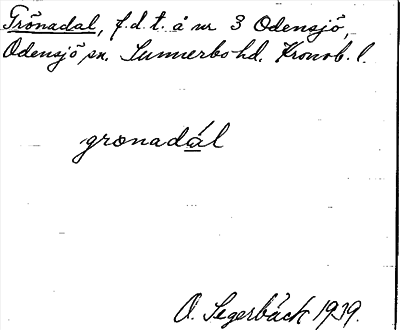 Grönadal, f.d.t. å nr 3 Odensjö,
Odensjö sn. Sunnerbo hd. Kronob. l.
grœnadál
O. Segerbäck 1939.